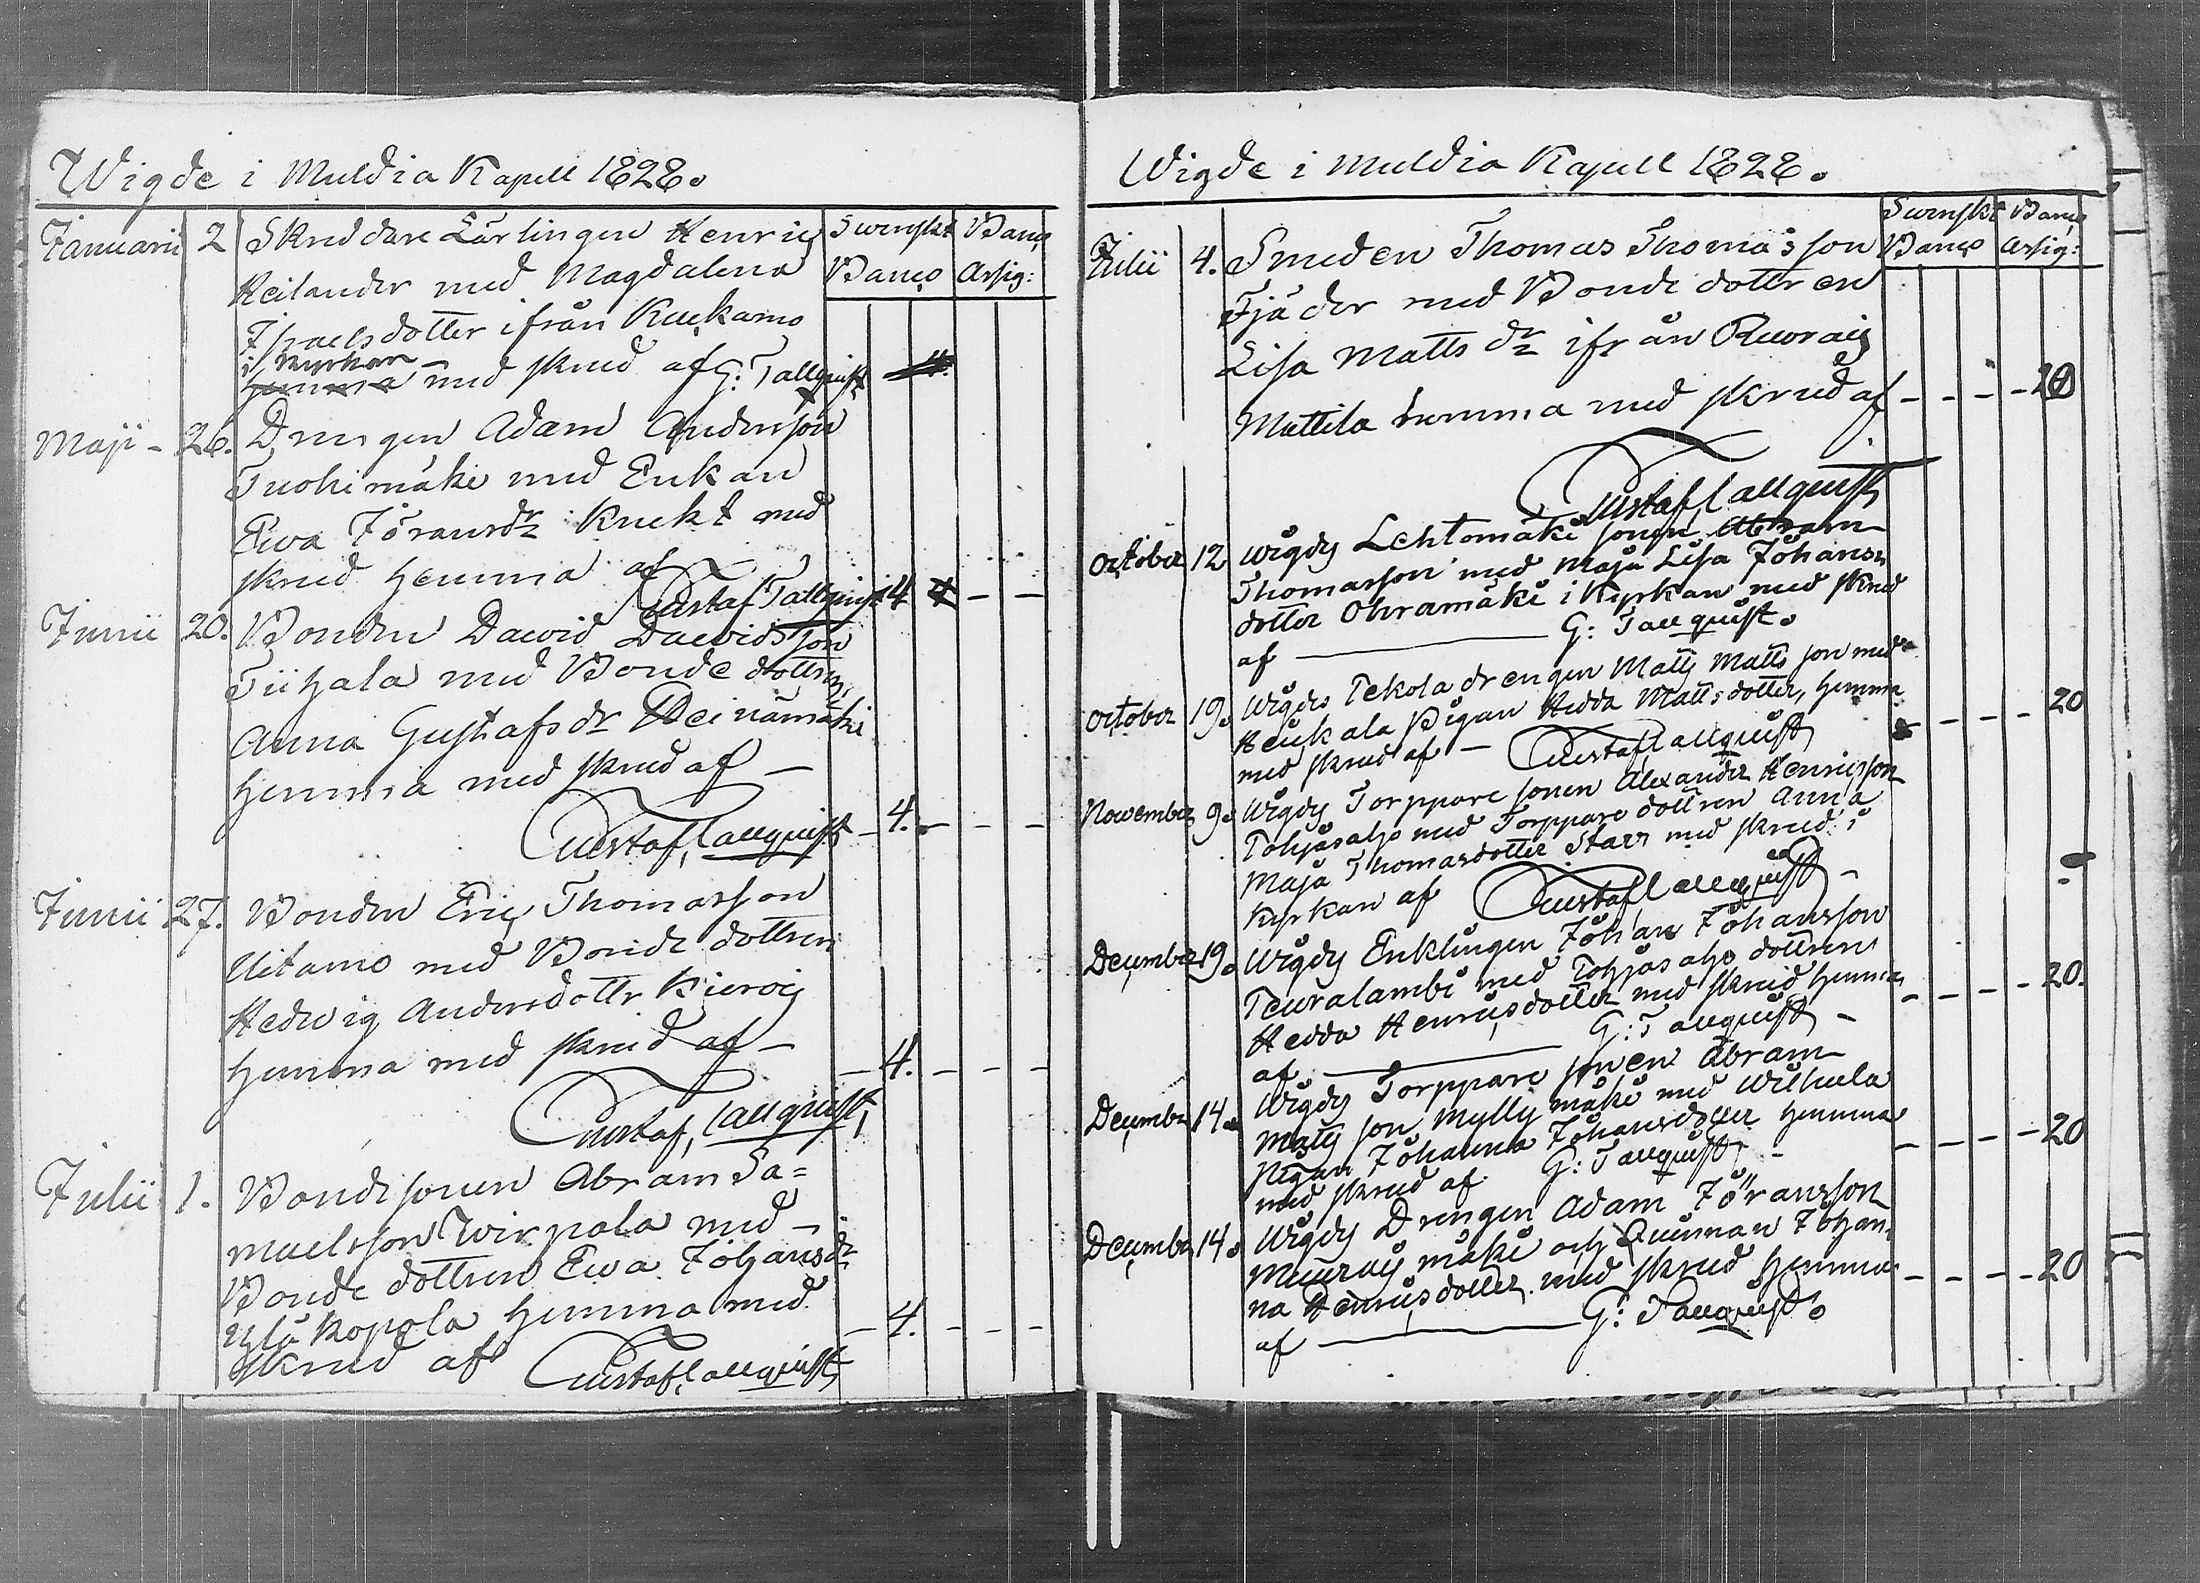 Wigde i Muldia Kapell 1828.
Januarii 2 Skreddare Lärlingen Henric
Heilander med Magdalena
Israelsdotter ifrån Kuckamo
i Kyrkan
hemma med skrud af G: Tallquist 4.
Swenskt Banco
Banco Assig:
Maji - 26. Drengen Adam Andersson
Tuohimäki med Enkan
Ewa Göransdr Knekt med
skrud hemma af
Gustaf Tallquist 4 4 - -
Junii 20. Bonden Dawid Dawidsson
Tiihala med Bonde dottren
Anna Gustafsdr Heinämäki
hemma med skrud af -
Gustaf Tallquist - 4. - - -
Junii 27. Bonden Eric Thomasson
Uitamo med Bonde dottren
Hedwig Andersdottr
hemma med skrud af - - 4. - - -
Gustaf Tallquist
Julii 1. Bondesonen Abram Sa=
muelsson Wirpala med -
Bonde dottren Ewa Johansdr
Ylä Kopola hemma med - 4. - - -
skrud af Gustaf Tallquist
Wigde i Muldia Kapell 1828.
Swenskt Banco
Banco Assig:
Julii 4. Smeden Thomas Thomasson
Tjäder med Bonde dottren
Lisa Matts dr ifrån
Mattila hemma med skrud af - - - - 20
Gustaf Tallquist
October 12 Wigdes Lehtomäki sonen Abram
Thomasson med Maja Lisa Johans
dotter Ohramäki i Kyrkan med skrud
af G: Tallquist.
October 19. Wigdes Tekola drengen Matts Matts son med
Heickala Pigan Hedda Mattsdotter, hemma - - - - 20
med skrud af - Gustaf Tallquist
November 9. Wigdes Torppare sonen Alexander Henricsson
Tohjasaho med Torppare dottren Anna
Maja Thomasdotter Starr med skrud i
Kyrkan af Gustaf Tallquist -
December 19. Wigdes Enklingen Johan Johansson
Teuralambi med Tohjasaho dottren
Hedda Henricsdotter med skrud hemma - - - - 20.
af G: Tallquist -
December 14. Wigdes Torppare sonen Abram
Matts son Myllymäki med
Pigan Johanna Johansdotter hemma - - - - 20
med skrud af G: Tallquist -
December 14. Wigdes Drengen Adam Göransson
och Quinnan Johan
na Henricsdotter med skrud hemma - - - - 20
af G: Tallquist.